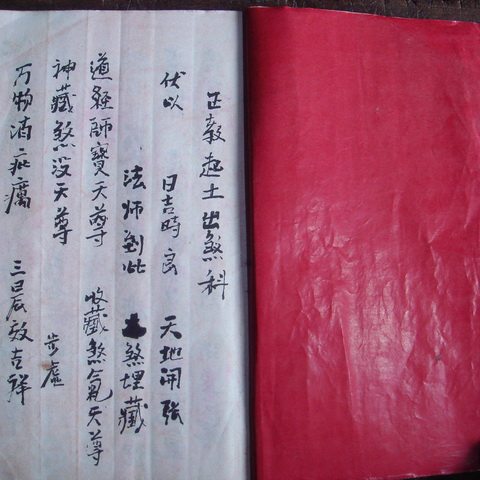 正教起土出煞科
伏以 日吉時良 天地開張
法师到此 煞埋藏
道經師寶天尊 收藏煞氣天尊
神藏煞没天尊 步虛
万物消疵癘 三辰效吉祥